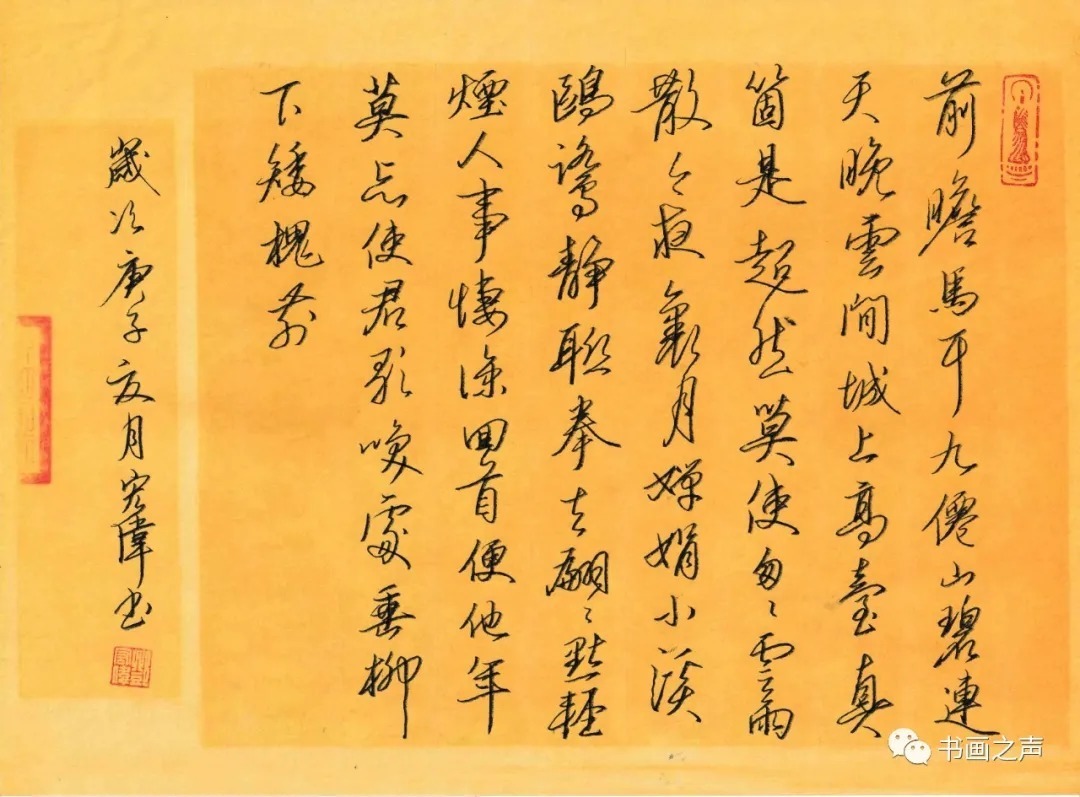 前瞻馬耳九僊山碧連
天晚雲間城上高臺真
箇是超然莫使匆〻雲雨
散今夜裏月嬋娟小溪
鷗鷺靜聯拳去翩〻點輕
煙人事悽涼回首便他年
莫忘使君歌咲處垂柳
下矮槐前
歲次庚子夏月宏偉書
书画之声